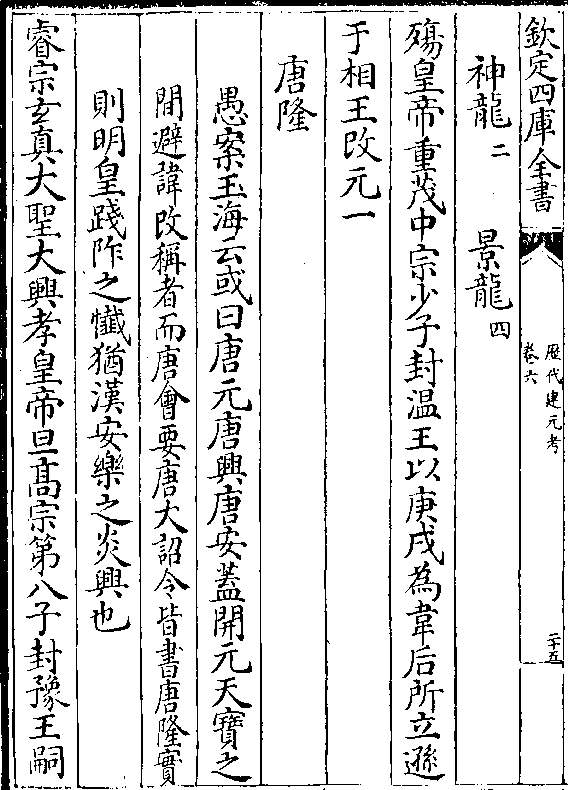 欽定四庫全書
歴代建元考
卷六
二十五
神龍二 景龍四
殤皇帝重茂中宗少子封温王以庚戌為韋后所立遜
于相王改元一
唐隆
愚案玉海云或曰唐元唐興唐安蓋開元天寶之
間避諱改稱者而唐會要唐大詔令皆書唐隆實
則明皇踐阼之懺猶漢安樂之炎興也
睿宗玄真大聖大興孝皇帝旦髙宗第八子封豫王嗣